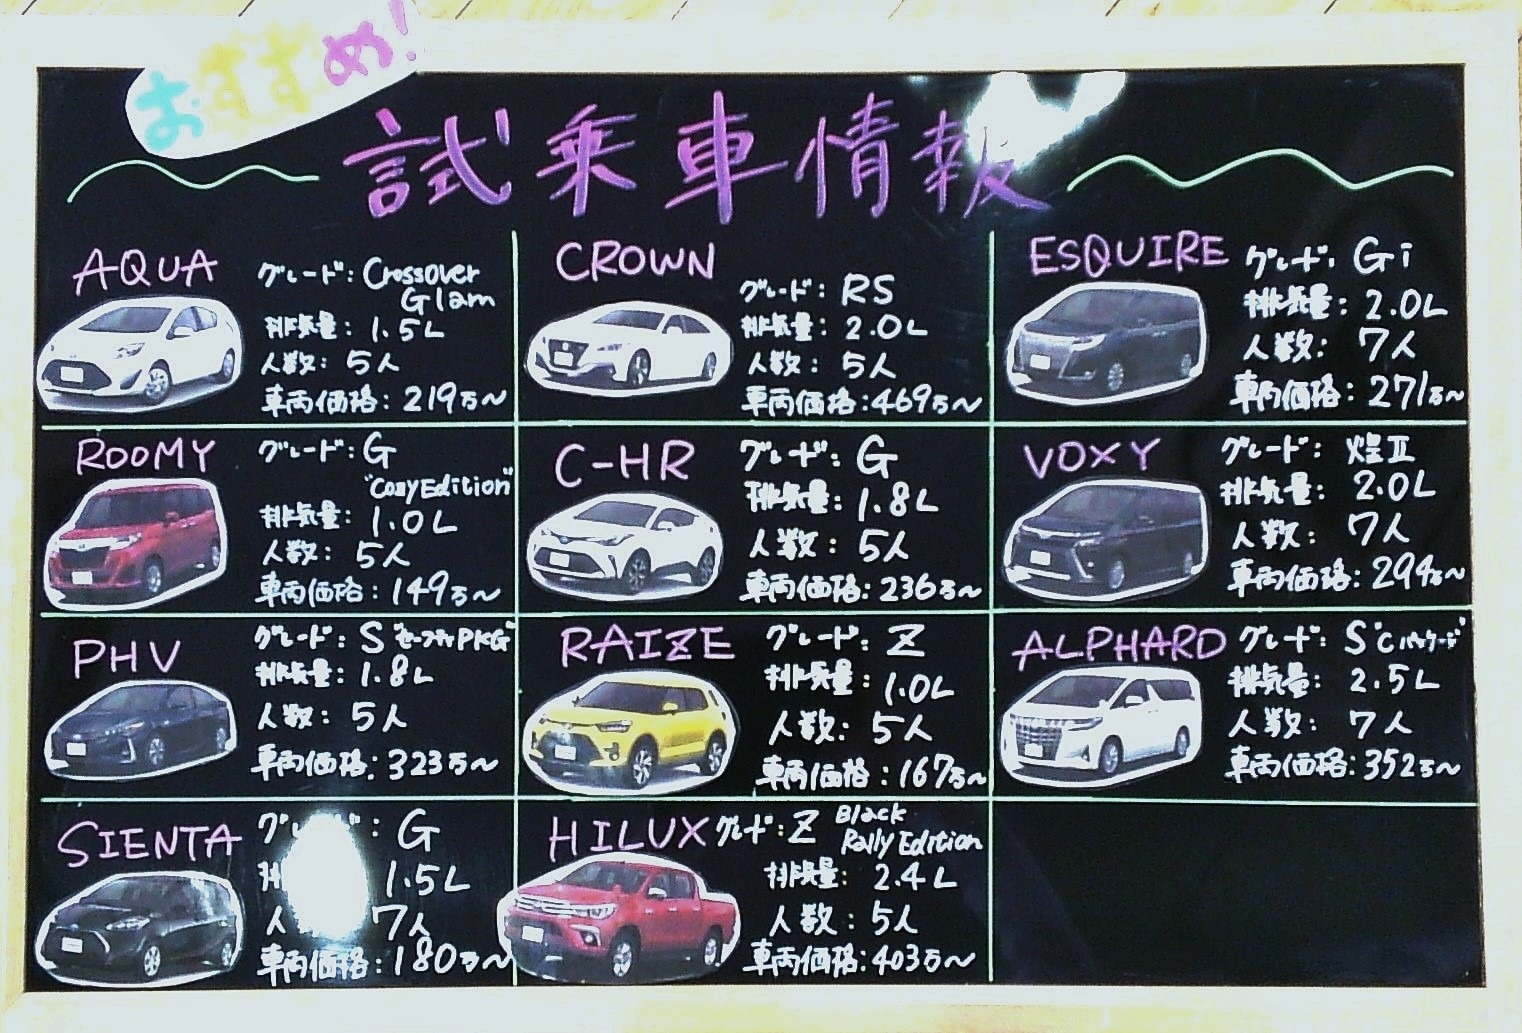 おすすめ!
試乗車情報
AQUA
グレード: Crossover
Glam
排気量: 1.5L
人数: 5人
車両価格: 219万〜
CROWN
グレード: RS
排気量: 2.0L
人数: 5人
車両価格: 469万〜
ESQUIRE
グレード: Gi
排気量: 2.0L
人数: 7人
車両価格: 271万〜
ROOMY
グレード: G
"CozyEdition"
排気量: 1.0L
人数: 5人
車両価格: 149万〜
C-HR
グレード: G
排気量: 1.8L
人数: 5人
車両価格: 236万〜
VOXY
グレード: 煌II
排気量: 2.0L
人数: 7人
車両価格: 294万〜
PHV
グレード: S "セーフティPKG"
排気量: 1.8L
人数: 5人
車両価格: 323万〜
RAIZE
グレード: Z
排気量: 1.0L
人数: 5人
車両価格: 167万〜
ALPHARD
グレード: S "Cパッケージ"
排気量: 2.5L
人数: 7人
車両価格: 352万〜
SIENTA
: G
1.5L
人 7人
車両価格: 180万〜
HILUX
グレード: Z Black
Rally Edition
排気量: 2.4L
人数: 5人
車両価格: 403万〜